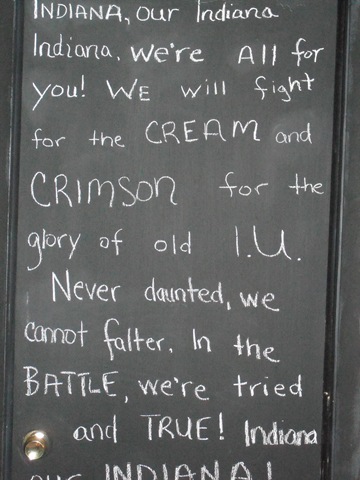 INDIANA, our Indiana
Indiana, we're All for
you! WE will fight
for the CREAM and
CRIMSON for the
glory of old I.U.
Never daunted, we
cannot falter. In the
BATTLE, we're tried
and TRUE! Indiana
our INDIANA!